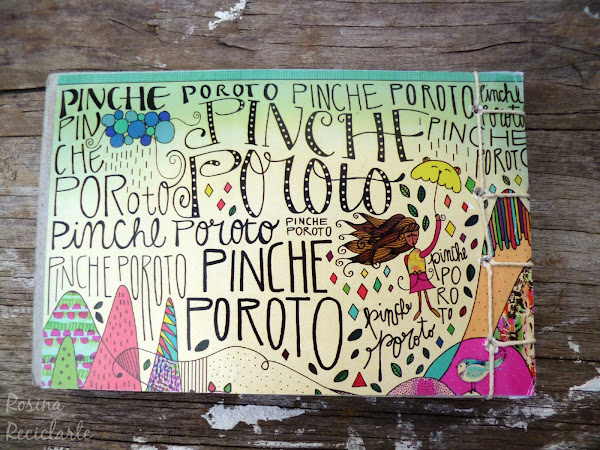 PINCHE POROTO PINCHE POROTO pinche
PIN
CHE
POROTO
PINCHE
POROTO
PINCHE
POROTO
pinche poroto
PINCHE POROTO
PINCHE
POROTO
PINCHE
POROTO
pinche
PO
RO
TO
pinche
poroto
Rosina
Reciclarte